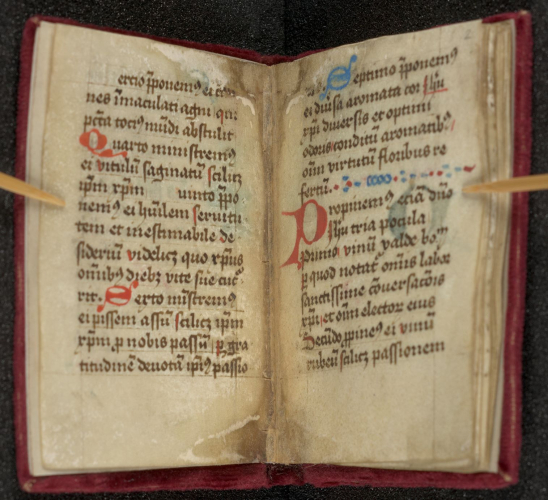 ercio ꝓponemꝰ ei
nes īmaculati agni qui
pctā tociꝰ mūdi abstulit
Quarto ministremꝰ
ei vitulū saginatū scilicꝫ
ip̄m xp̄m uinto ꝓpo
nemꝰ ei huīlem seruitu
tem et inestimabile de
sideriū videlicꝫ quo xp̄us
om̄ibꝰ diebꝫ vite sue
rit. Sexto mīstremꝰ
ei pissem assū scilicꝫ ip̄m
xp̄m ꝓ nobis passū gra
titudinē deuotā ip̄iꝰ passio
Septimo ꝓponemꝰ
ei diūsa aromata
xp̄i diuersis et optimi
odoris conditū aromatibꝰ
oīm virtutū floribus re
fertū.
Propinemꝰ eciā dn̄o
ih̄u tria pocula
Primo vinū valde
ꝑ quod notat᷑ om̄is labor
sanctissime cōuersacōis
xp̄i et oīm elector eius
Secūdo ꝓpinemꝰ ei vinū
rubeū scilicꝫ passionem